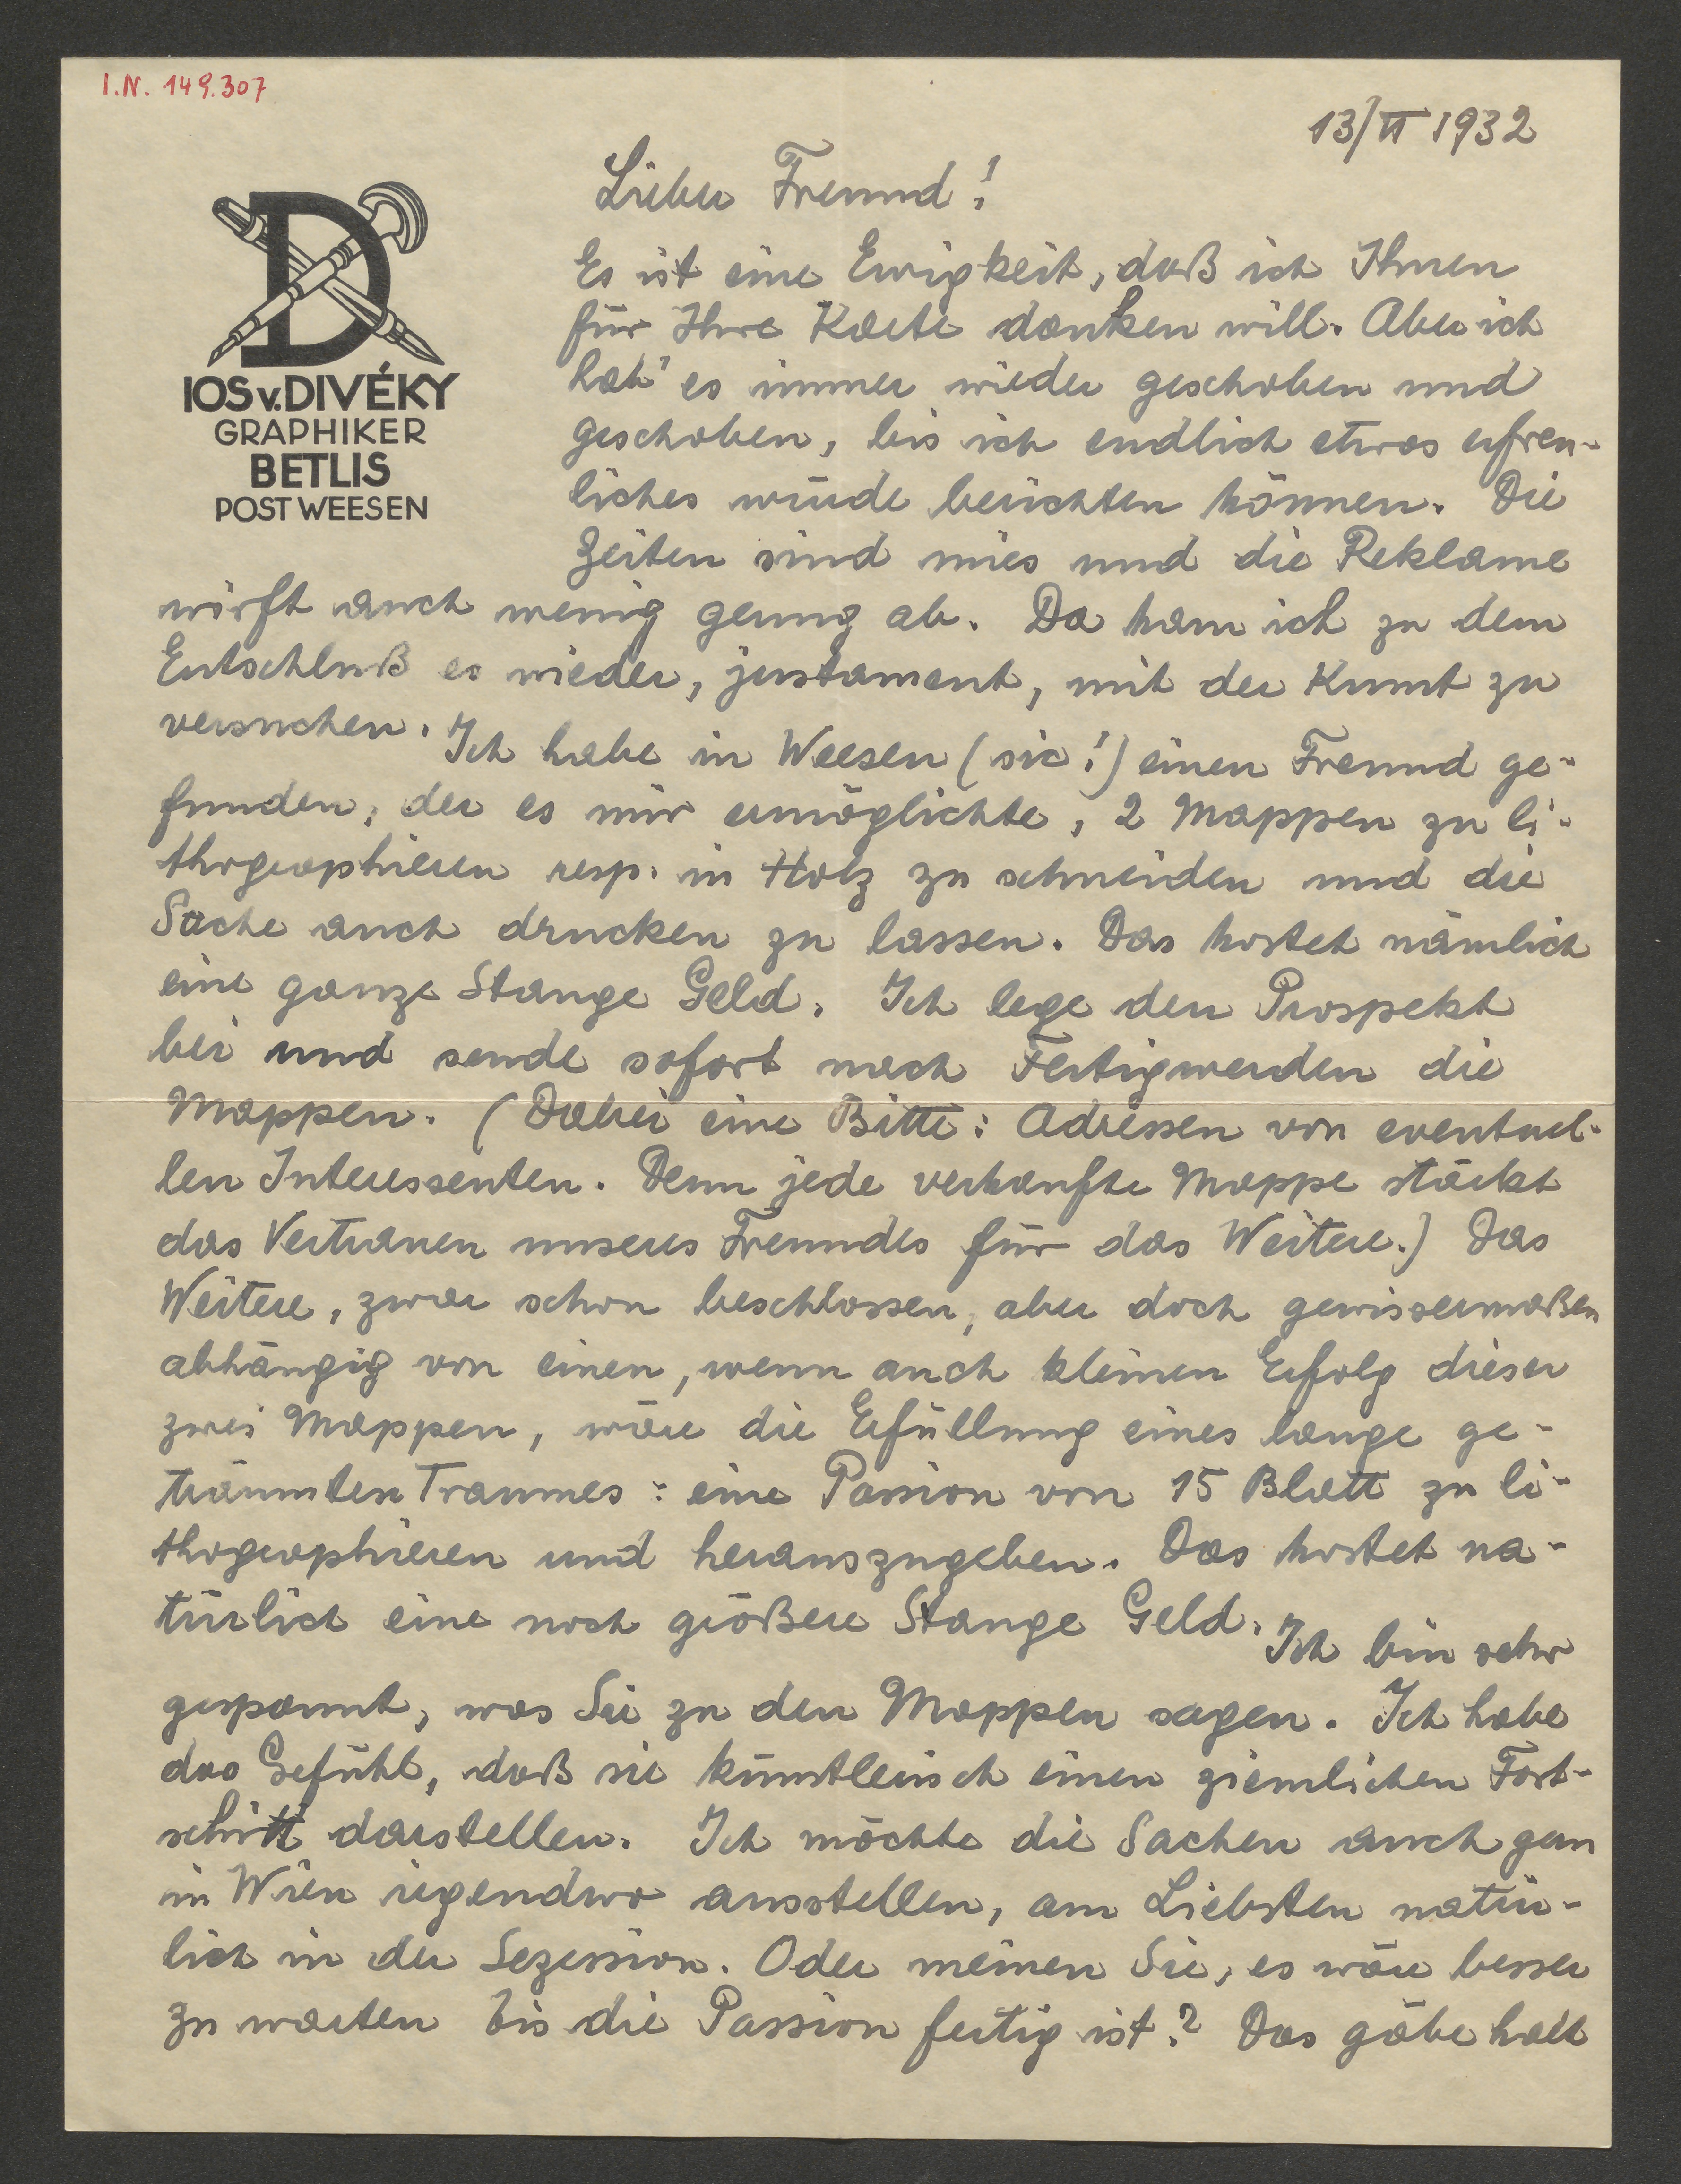 I.N. 149.307
13/II 1932
IOS v. DIVÉKY
GRAPHIKER
BETLIS
POST WEESEN
Lieber Freund!
Es ist eine Ewigkeit, daß ich Ihnen
für Ihre Karte danken will. Aber ich
hab' es immer wieder geschoben und
geschoben, bis ich endlich etwas erfreu-
liches würde berichten können. Die
Zeiten sind mies und die Reklame
wirft auch wenig genug ab. Da kam ich zu dem
Entschluß es wieder, justament, mit der Kunst zu
versuchen. Ich habe in Weesen (sic!) einen Freund ge-
funden, der es mir ermöglichte, 2 Mappen zu li-
thographieren resp. in Holz zu schneiden und die
Sache auch drucken zu lassen. Das kostet nämlich
eine ganze Stange Geld. Ich lege den Prospekt
bei und sende sofort nach Fertigwerden die
Mappen. (Dabei eine Bitte: Adressen von eventuel-
len Interessenten. Denn jede verkaufte Mappe stärkt
das Vertrauen unseres Freundes für das Weitere.) Das
Weitere, zwar schon beschlossen, aber doch gewissermaßen
abhängig von einen, wenn auch kleinen Erfolg dieser
zwei Mappen, wäre die Erfüllung eines lange ge-
träumten Traumes: eine Passion von 15 Blatt zu li-
thographieren und herauszugeben. Das kostet na-
türlich eine noch größere Stange Geld. Ich bin sehr
gespannt, was Sie zu den Mappen sagen. Ich habe
das Gefühl, daß sie künstlerisch einen ziemlichen Fort-
schritt darstellen. Ich möchte die Sachen auch gern
in Wien irgendwo ausstellen, am Liebsten natür-
lich in der Sezession. Oder meinen Sie, es wäre besser
zu warten bis die Passion fertig ist? Das gäbe halt